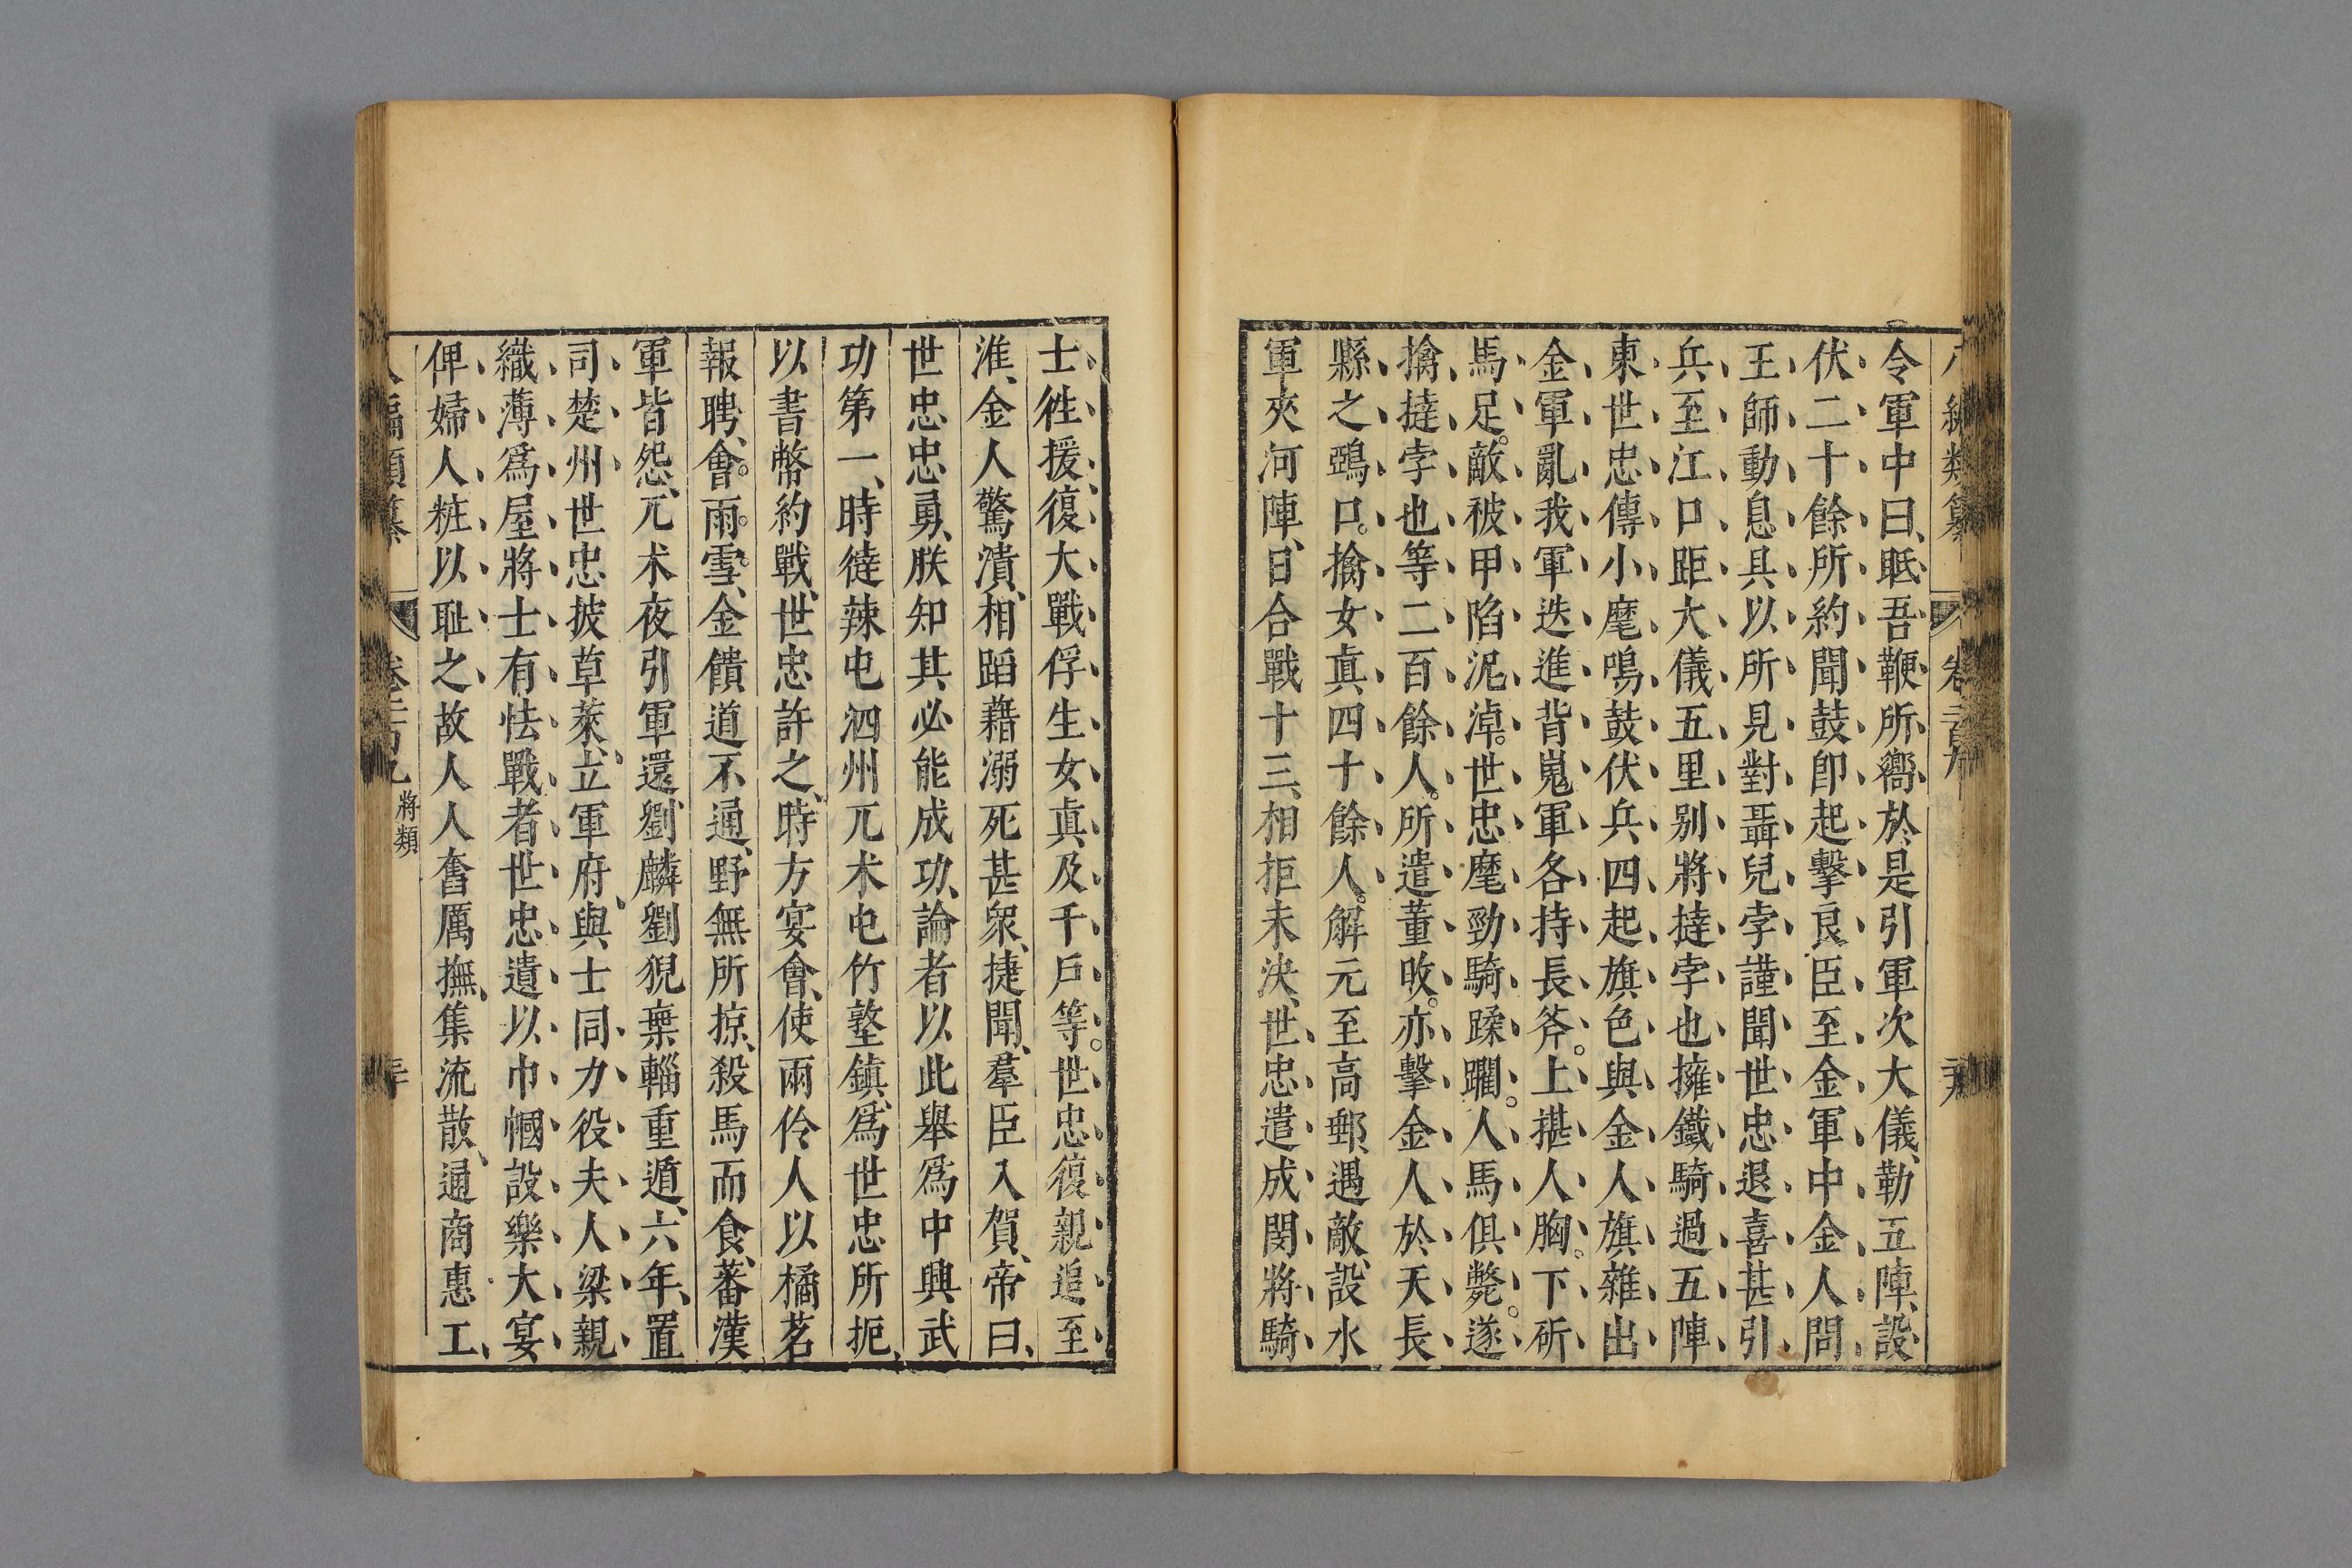 令軍中曰、眡吾鞭所嚮、於是引軍次大儀、勒五陣、設
伏二十餘所、約聞鼓卽起擊、良臣至金軍中、金人問
王師動息、具以所見對、聶兒孛謹聞世忠退、喜甚、引
兵至江口、距大儀五里、別將撻孛也擁鐵騎過五陣
東、世忠傳小麾鳴鼓、伏兵四起、旗色與金人旗雜出、
金軍亂、我軍迭進、背嵬軍各持長斧。上揕人胸。下斫
馬足。敵被甲陷泥淖。世忠麾勁騎蹂躪。人馬俱斃。遂
擒撻孛也等二百餘人。所遣董旼。亦擊金人於天長
縣之鵶口。擒女眞四十餘人。解元至高郵、遇敵、設水
軍夾河陣、日合戰十三、相拒未決、世忠遣成閔將騎
士徃援、復大戰、俘生女眞及千戶等。世忠復親追至
淮、金人驚潰、相蹈藉溺死甚衆、捷聞、羣臣入賀、帝曰、
世忠忠勇、朕知其必能成功、論者以此舉爲中興武
功第一、時撻辣屯泗州、兀术屯竹塾鎮、爲世忠所扼、
以書幣約戰、世忠許之、時方宴會、使兩伶人以橘茗
報聘、會。雨。雪、金饋道不通、野無所掠、殺馬而食、蕃漢
軍皆怨、兀术夜引軍還、劉麟劉猊棄輜重遁、六年、置
司楚州、世忠披草萊、立軍府、與士同力役、夫人梁親
織薄爲屋、將士有怯戰者、世忠遺以巾幗、設樂大宴、
俾婦人粧以耻之、故人人奮厲、撫集流散、通商惠工、
編類纂 卷二百九 將類 三十